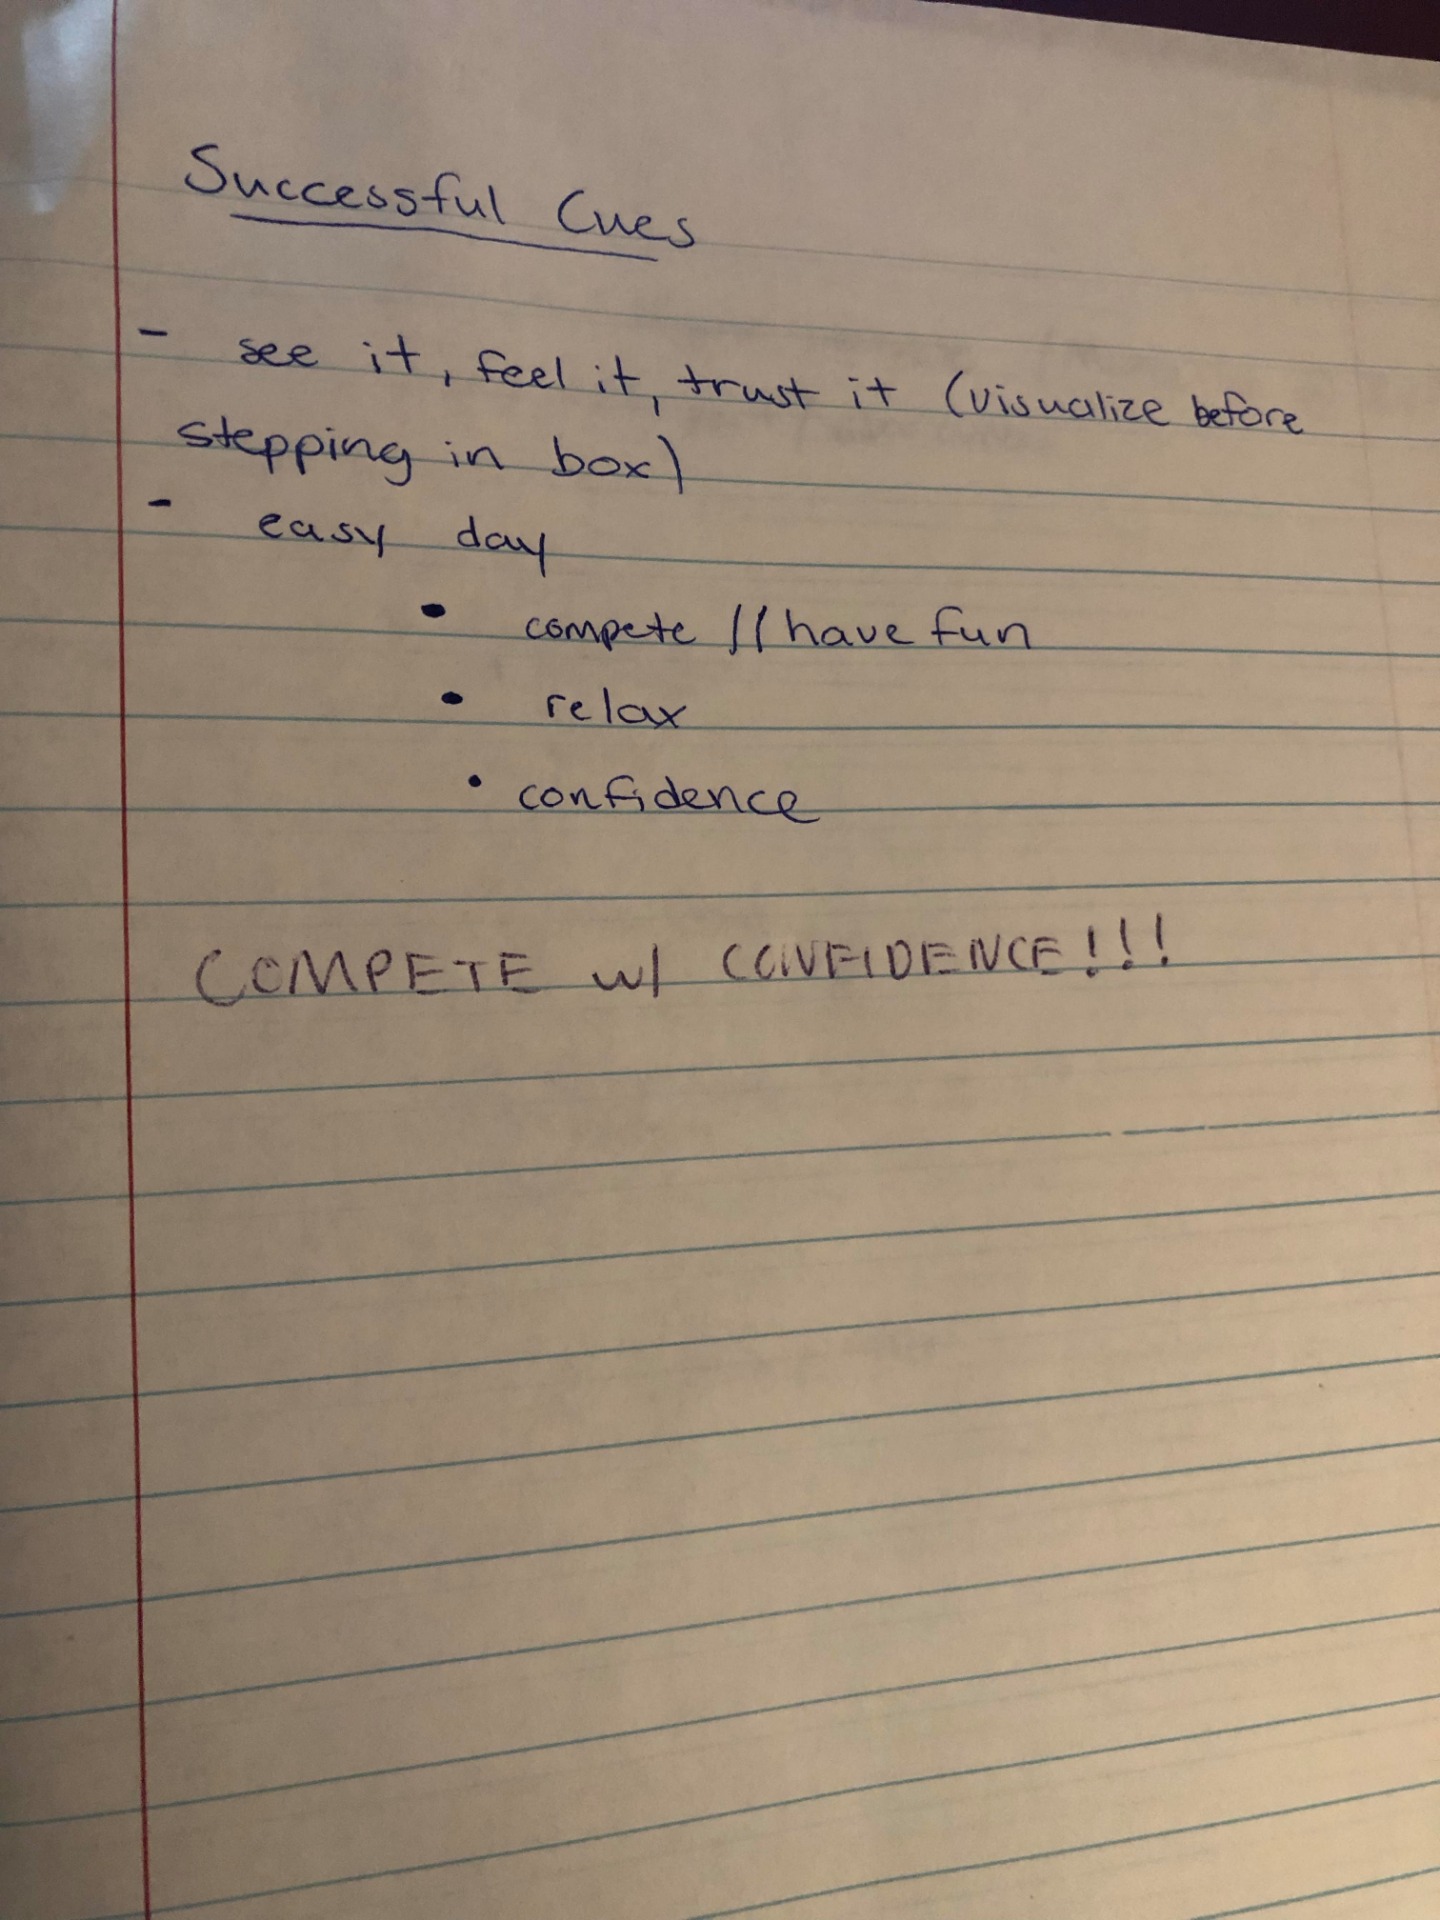 Successful Cues
- see it, feel it, trust it (visualize before
stepping in box)
- easy day
• compete // have fun
• relax
• confidence
COMPETE w/ CONFIDENCE!!!